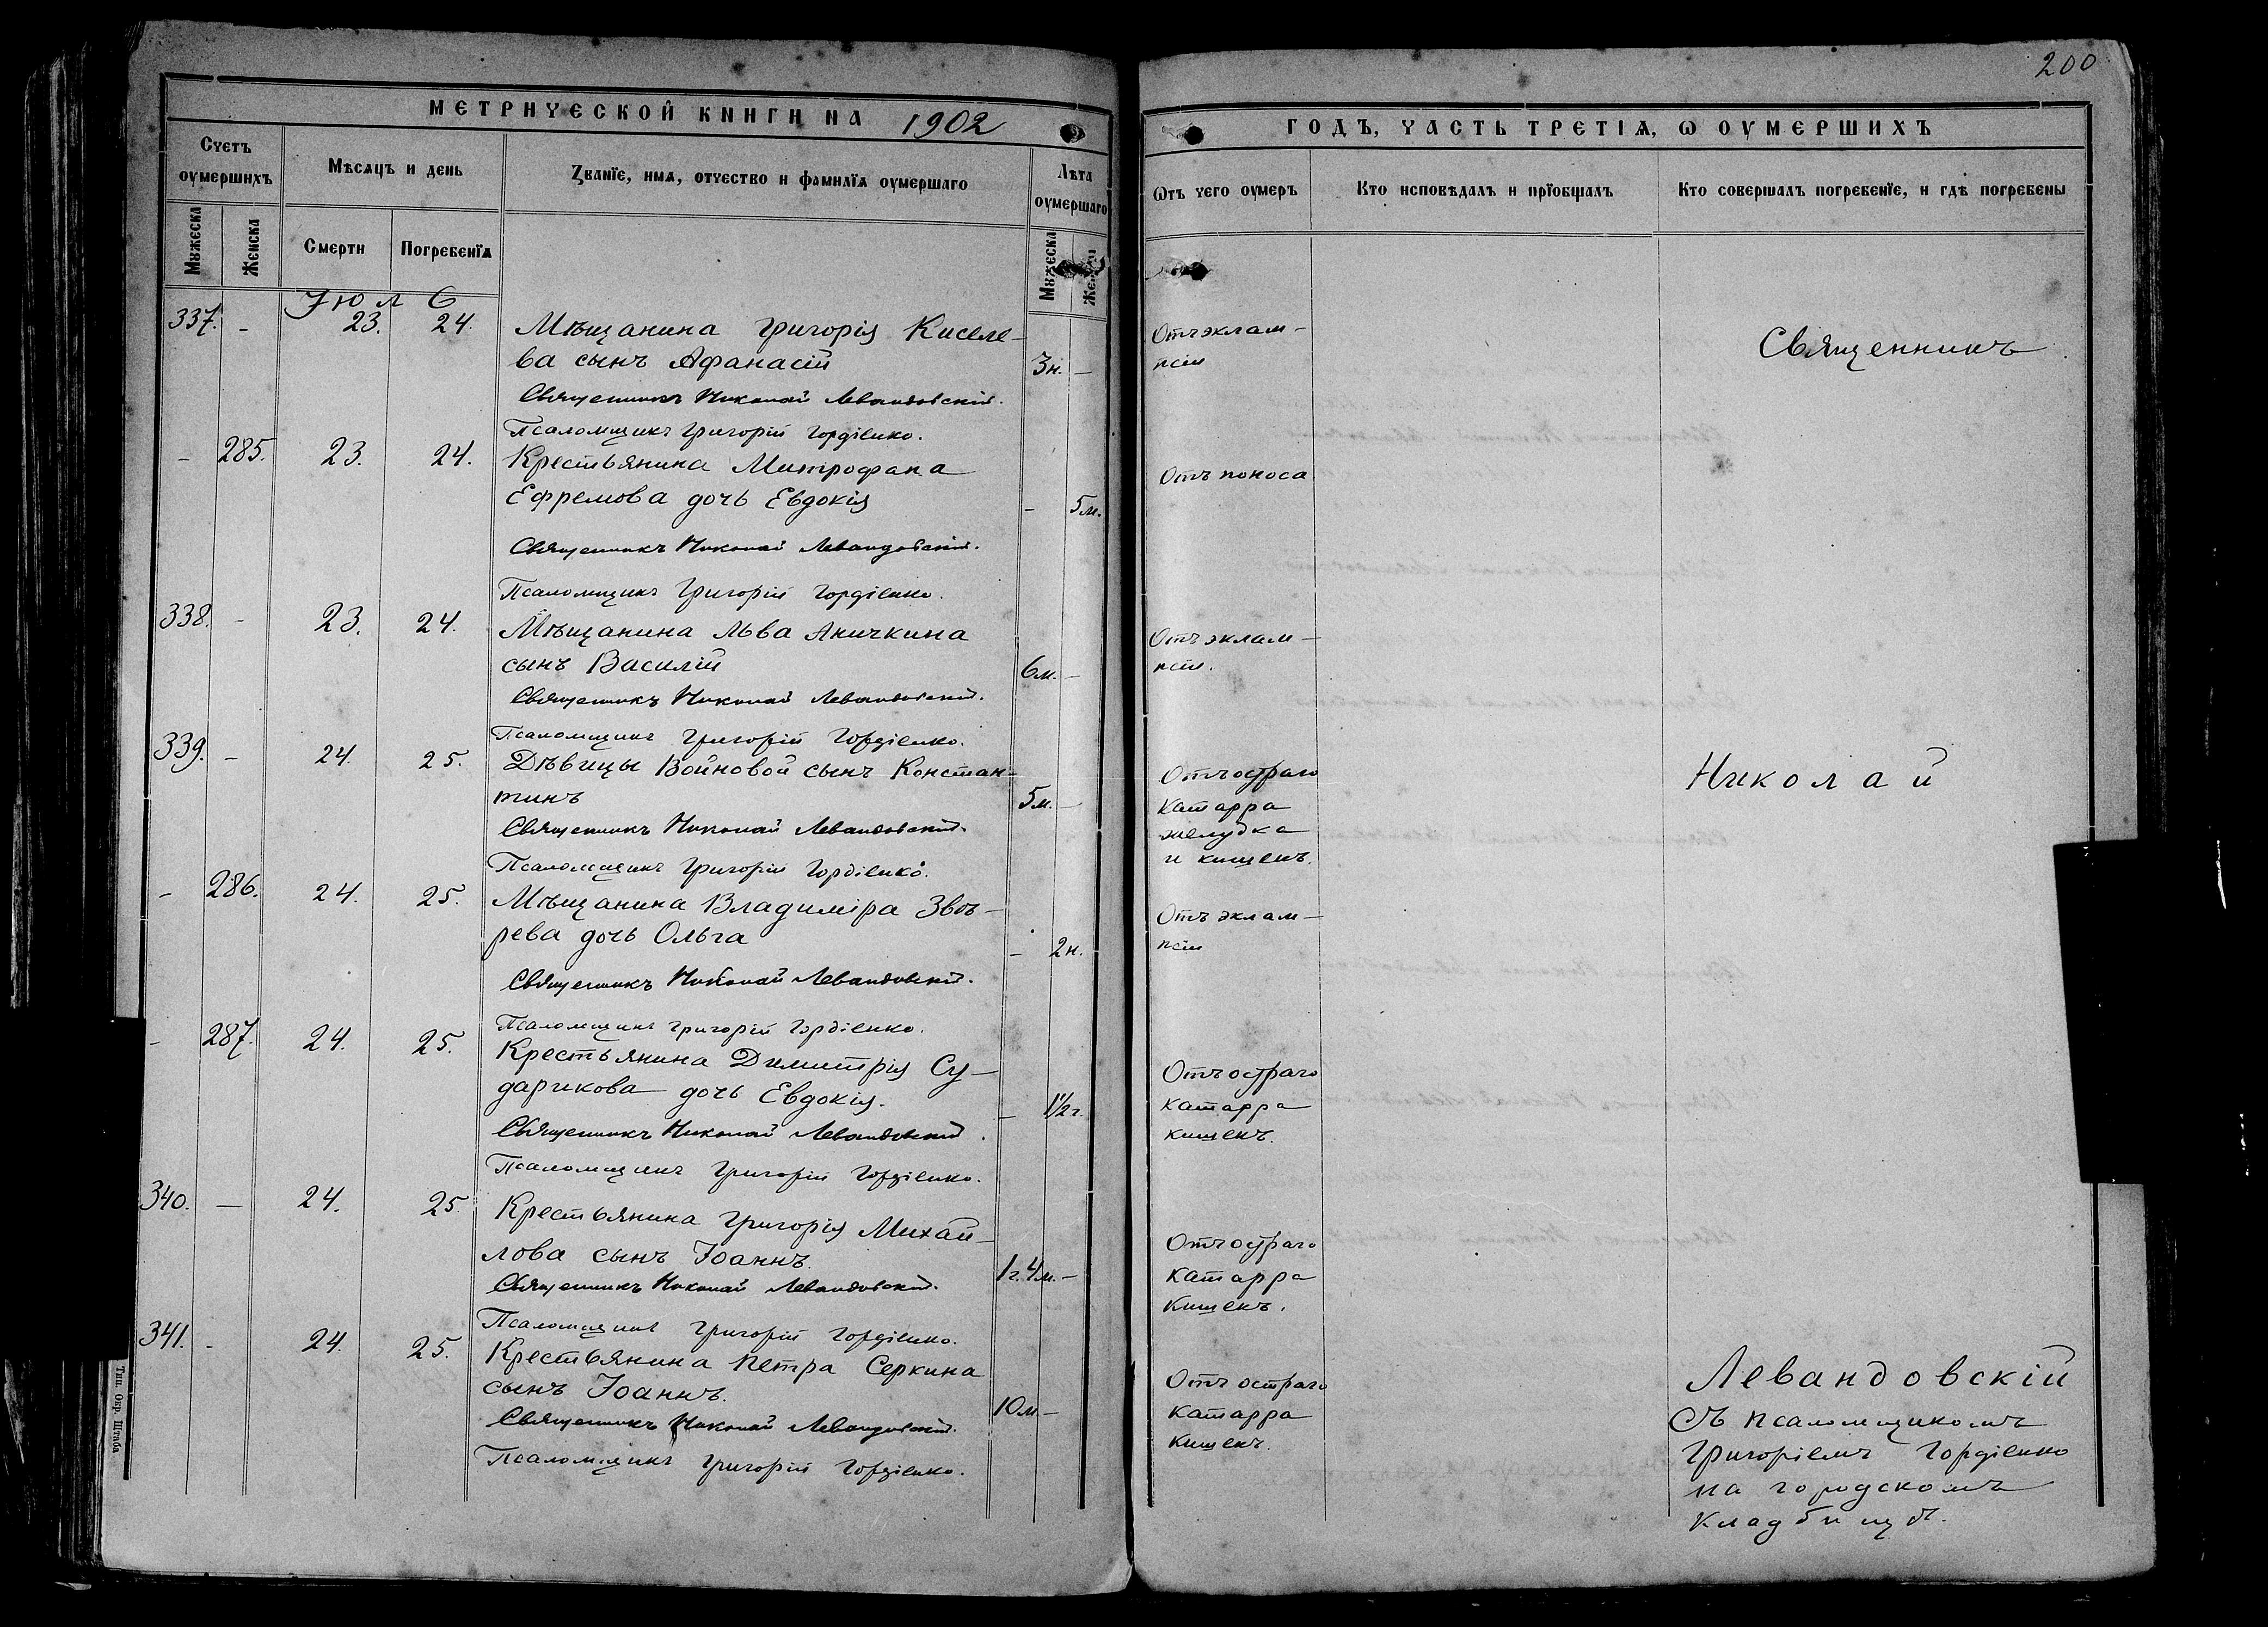 200
МЕТРИЧЕСКОЙ КНИГИ НА 1902
ГОДЪ, ЧАСТЬ ТРЕТІѦ, Ѡ ОУМЕРШИХЪ
Счетъ оумершихъ
Мѣсяцъ и день
Званїе, имя, отчество и фамилїя оумершаго
Лѣта оумершаго
Ѿтъ чего оумеръ
Кто исповѣдалъ и прїобщалъ
Кто совершалъ погребенїе, и гдѣ погребены
Мужеска
Женска
Смерти
Погребенїя
Мужеска
Женска
Іюль
337. - 23. 24. Мѣщанина Григорія Киселе-
ва сынъ Афанасій 3н. -
Отъ эклам-
псіи
Священникъ Николай Левандовскій.
Псаломщикъ Григорій Гордіенко.
- 285. 23. 24. Крестьянина Митрофана
Ефремова дочь Евдокія - 5м.
Отъ поноса
Священникъ Николай Левандовскій.
Псаломщикъ Григорій Гордіенко.
338. - 23. 24. Мѣщанина Льва Аничкина
сынъ Василій 6м. -
Отъ эклам-
псіи.
Священникъ Николай Левандовскій.
Псаломщикъ Григорій Гордіенко.
339. - 24. 25. Дѣвицы Войновой сынъ Констан-
тинъ 5м. -
Отъ остраго
катарра
желудка
и кишекъ.
Священникъ Николай Левандовскій.
Псаломщикъ Григорій Гордіенко.
- 286. 24. 25. Мѣщанина Владиміра Звѣ-
рева дочь Ольга - 2н.
Отъ эклам-
псіи
Священникъ Николай Левандовскій.
Псаломщикъ Григорій Гордіенко.
- 287. 24. 25. Крестьянина Димитрія Су-
дарикова дочь Евдокія. - 1½г.
Отъ остраго
катарра
кишекъ.
Священникъ Николай Левандовскій.
Псаломщикъ Григорій Гордіенко.
340. - 24. 25 Крестьянина Григорія Михай-
лова сынъ Іоаннъ. 1г.4м. -
Отъ остраго
катарра
кишекъ.
Священникъ Николай Левандовскій.
Псаломщикъ Григорій Гордіенко.
341. - 24. 25. Крестьянина Петра Серкина
сынъ Іоаннъ. 10м -
Отъ остраго
катарра
кишекъ.
Священникъ Николай Левандовскій.
Псаломщикъ Григорій Гордіенко.
Священникъ
Николай
Левандовскій
съ псаломщикомъ
Григоріемъ Гордіенко
на городскомъ
кладбищѣ.
Тип. Окр. Штаба